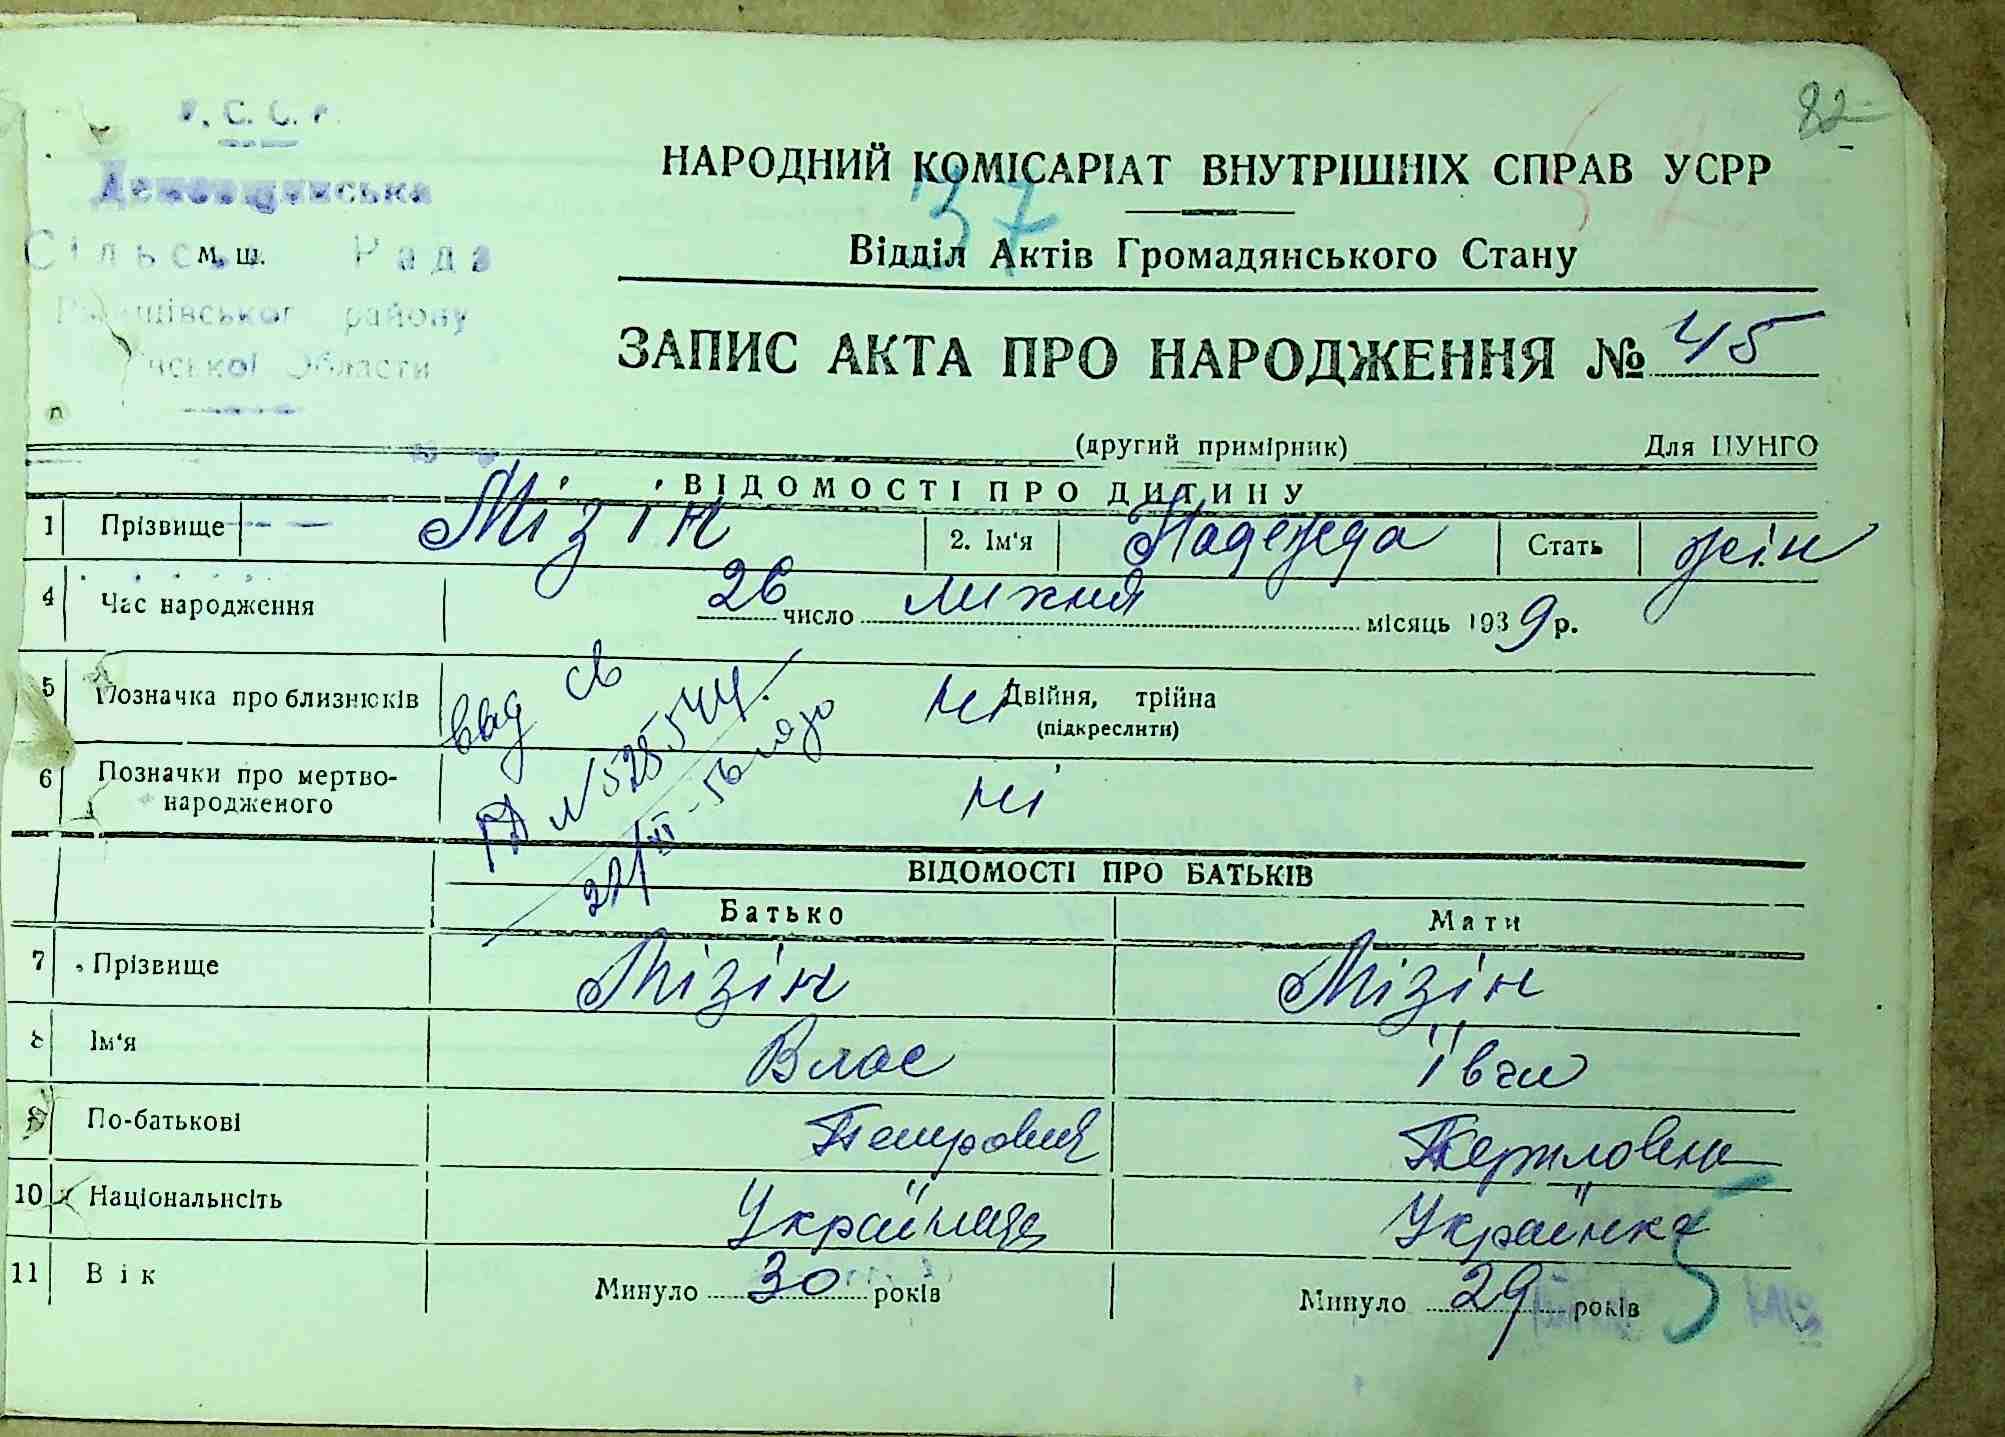 82
У. С. С. Р.
Сільська Рада
району
Области
м. ш.
НАРОДНИЙ КОМІСАРІАТ ВНУТРІШНІХ СПРАВ УСРР
37
Відділ Актів Громадянського Стану
ЗАПИС АКТА ПРО НАРОДЖЕННЯ № 45
(другий примірник) Для ЦУНГО
ВІДОМОСТІ ПРО ДИТИНУ
1 Прізвище Мізін 2. Ім'я Надежда Стать жін
4 Час народження 26 число липня місяць 1939 р.
5 Позначка про близнюків ні Двійня, трійна
(підкреслити)
вид св
№ 525544
6 Позначки про мертво-
народженого ні
ВІДОМОСТІ ПРО БАТЬКІВ
Батько Мати
7 Прізвище Мізін Мізін
8 Ім'я Влас
9 По-батькові Петрович
10 Національність Українець Українка
11 Вік Минуло 30 років Минуло 29 років
5